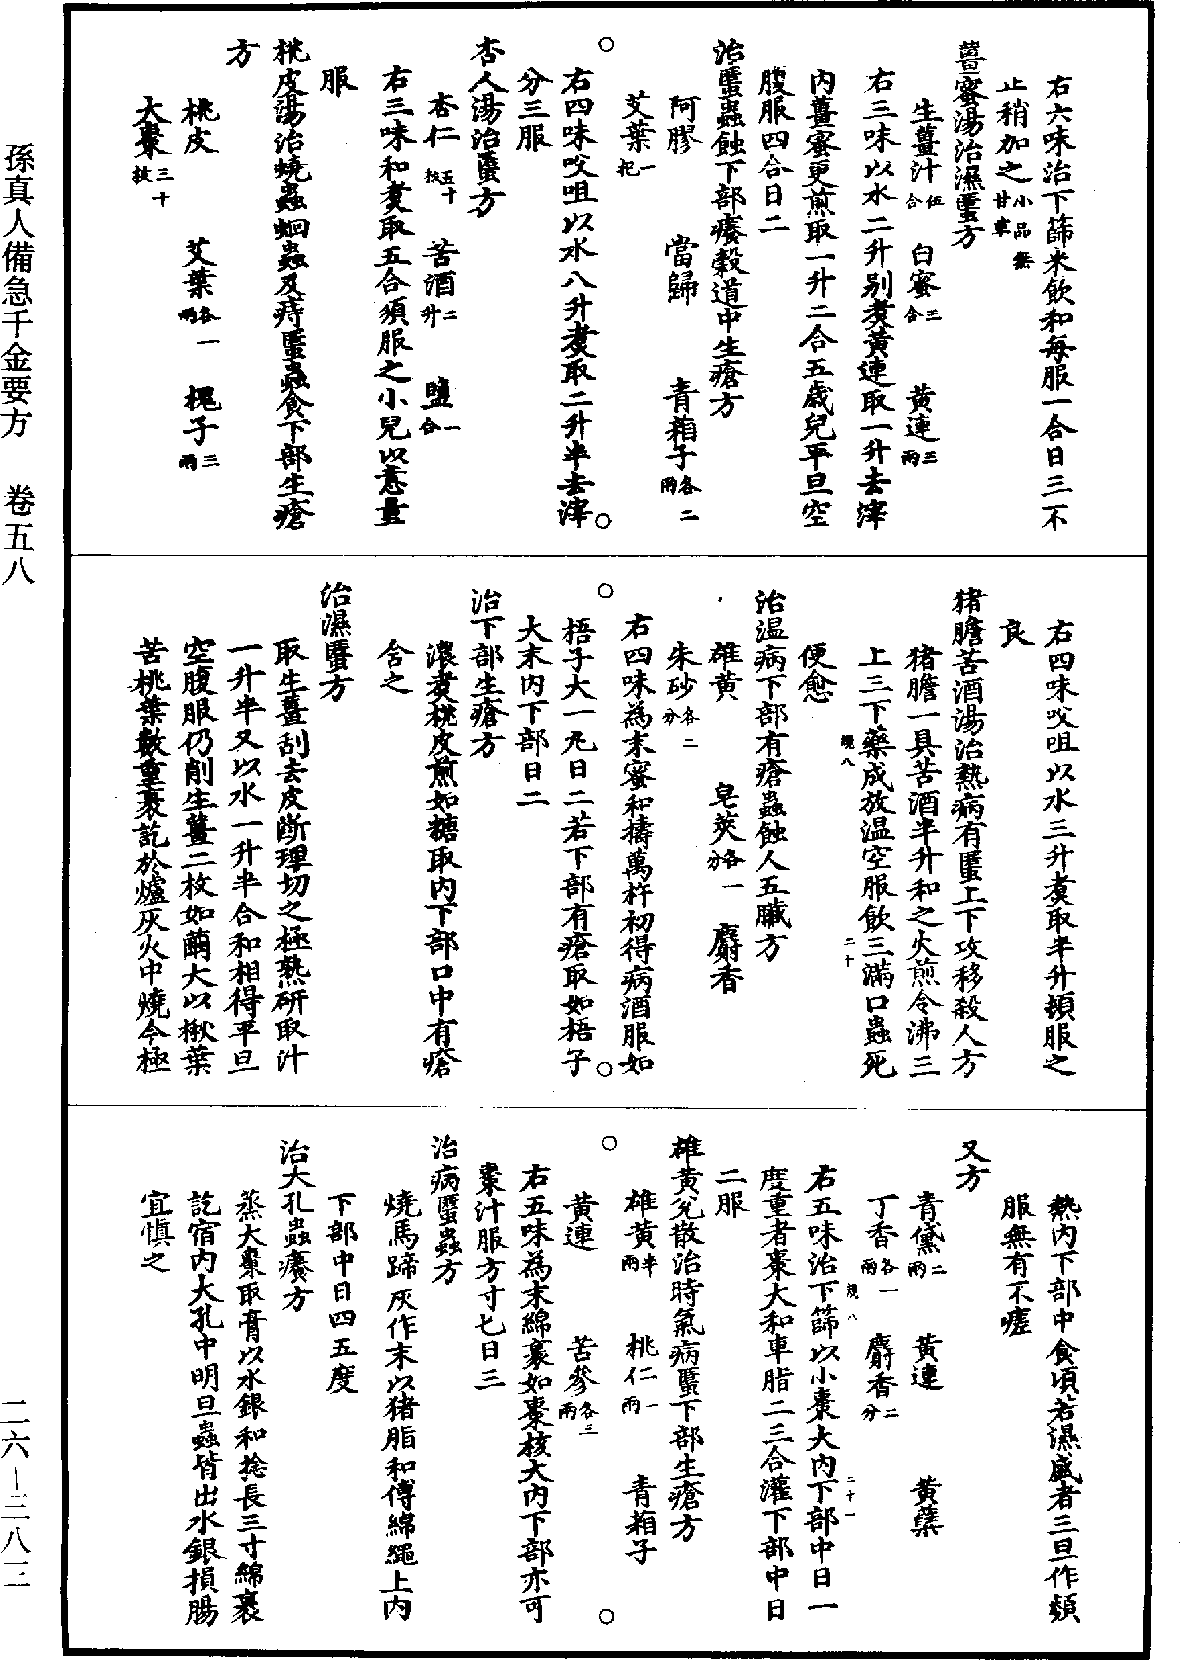 右六味治下篩米飲和每服一合日三不
止稍加之小品無甘草
薑蜜湯治濕䘌方
生薑汁伍合　白蜜三合　黄連三兩
右三味以水二升别煑黄連取一升去滓
内薑蜜更煎取一升二合五歲兒平旦空
腹服四合日二
治䘌蟲蝕下部癢穀道中生瘡方
阿膠　當歸　青葙子各二兩
艾葉一把
右四味㕮咀以水八升煑取二升半去滓
分三服
杏人湯治䘌方
杏仁五十枚　苦酒二升　鹽一合
右三味和煑取五合須服之小兒以意量
服
桃皮湯治蟯蟲蛔蟲及痔䘌蟲食下部生瘡
方
桃皮　艾葉各一兩　槐子三兩
大棗三十枚
右四味㕮咀以水三升煑取半升頓服之
良
猪膽苦酒湯治熱病有䘌上下攻移殺人方
猪膽一具苦酒半升和之火煎令沸三
上三下藥成放温空服飲三滿口蟲死
便愈
規八
二十
治温病下部有瘡蟲蝕人五臟方
雄黄　皂莢各一分　麝香
朱砂各二分
右四味為末蜜和擣萬杵初得病酒服如
梧子大一丸日二若下部有瘡取如梧子
大末内下部日二
治下部生瘡方
濃煑桃皮煎如糖取内下部口中有瘡
含之
治濕䘌方
取生薑刮去皮斷理切之極熟研取汁
一升半又以水一升半合和相得平旦
空腹服仍削生薑二枚如繭大以楸葉
苦桃葉數重裹訖於爐灰火中燒令極
熱内下部中食頃若濕盛者三旦作頻
服無有不瘥
又方
青黛二兩　黄連　黄蘗
丁香各一兩　麝香二分
右五味治下篩以小棗大内下部中日一
規八
二十一
度重者棗大和車脂二三合灌下部中日
二服
雄黄兌散治時氣病䘌下部生瘡方
雄黄半兩　桃仁一兩　青葙子
黄連　苦參各三兩
右五味為末綿裹如棗核大内下部亦可
棗汁服方寸七日三
治病䘌蟲方
燒馬蹄灰作末以猪脂和傅綿繩上内
下部中日四五度
治大孔蟲癢方
蒸大棗取膏以水銀和捻長三寸綿裹
訖宿内大孔中明旦蟲皆出水銀損腸
宜慎之
孫真人備急千金要方　卷五八
二六—三八三